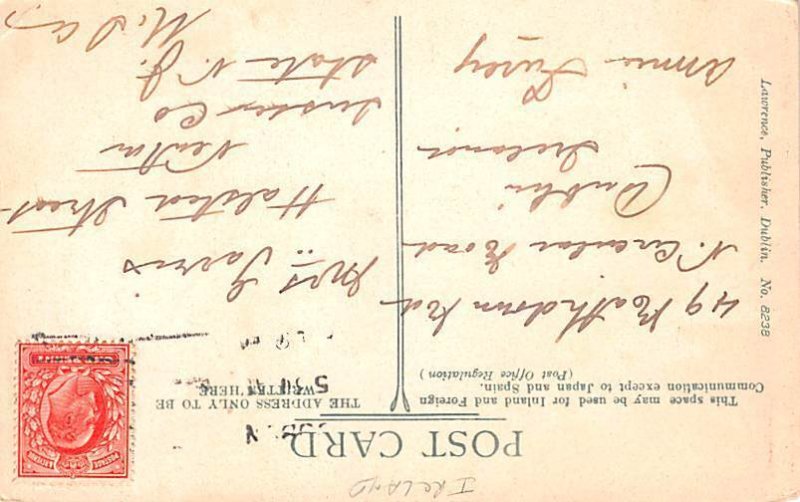 POST CARD
This space may be used for Inland and Foreign
Communication except to Japan and Spain.
(Post Office Regulation)
THE ADDRESS ONLY TO BE
WRITTEN HERE
49 Rathdown Rd
N. Circular Road
Dublin
Ireland
Annie
Mrs.
Halsted Street
Newton
Sussex Co
State N. J.
U. S. A.
Lawrence, Publisher, Dublin. No. 8238
IRELAND